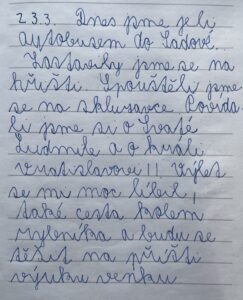 23.3. Dnes jsme jeli
autobusem do Sadové.
Zastavily jsme se na
hřišti. Spouštěli jsme
se na skluzavce Povída
li jsme si o Svaté
Ludmile a o králi
Vratislavovi II. Výlet
se mi moc líbil,
také cesta kolem
rybníka a budu se
těšit na příští
výuku venku